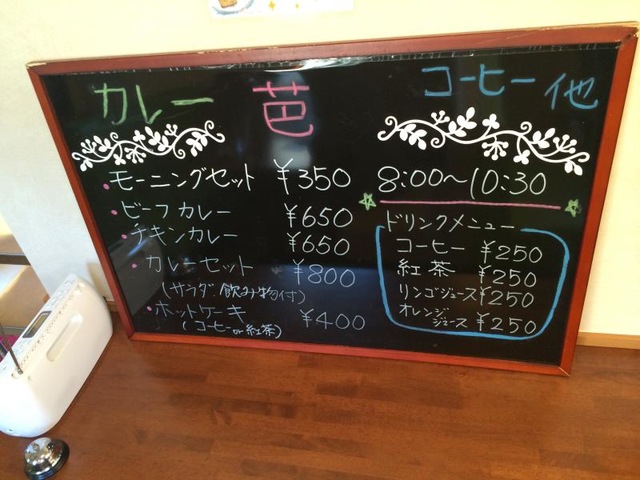 カレー 芭 コーヒー他
・モーニングセット ¥350 8:00〜10:30
・ビーフカレー ¥650
・チキンカレー ¥650
・カレーセット ¥800
(サラダ.飲み物付)
・ホットケーキ ¥400
(コーヒーor紅茶)
ドリンクメニュー
コーヒー ¥250
紅茶 ¥250
リンゴジュース ¥250
オレンジ
ジュース ¥250